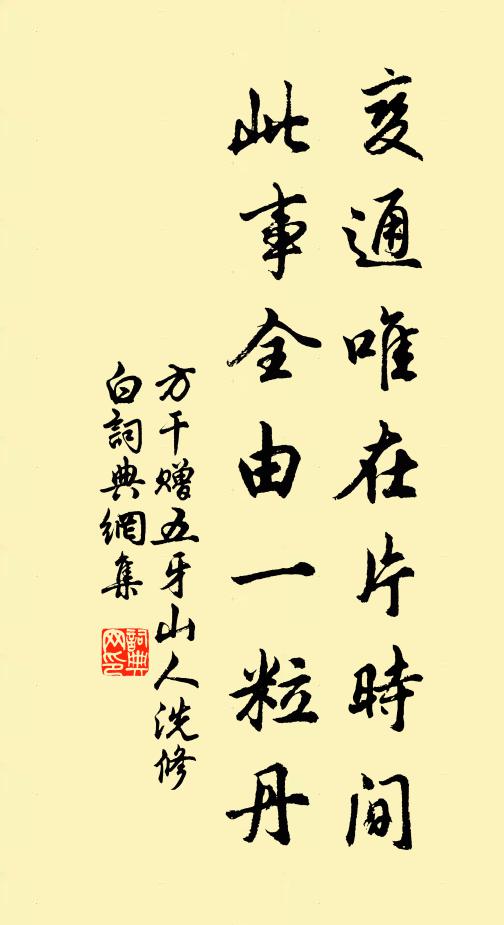 变通唯在片時间
此事全由一粒丹
方干赠五牙山人洗修
白詞典網集
詞典网印